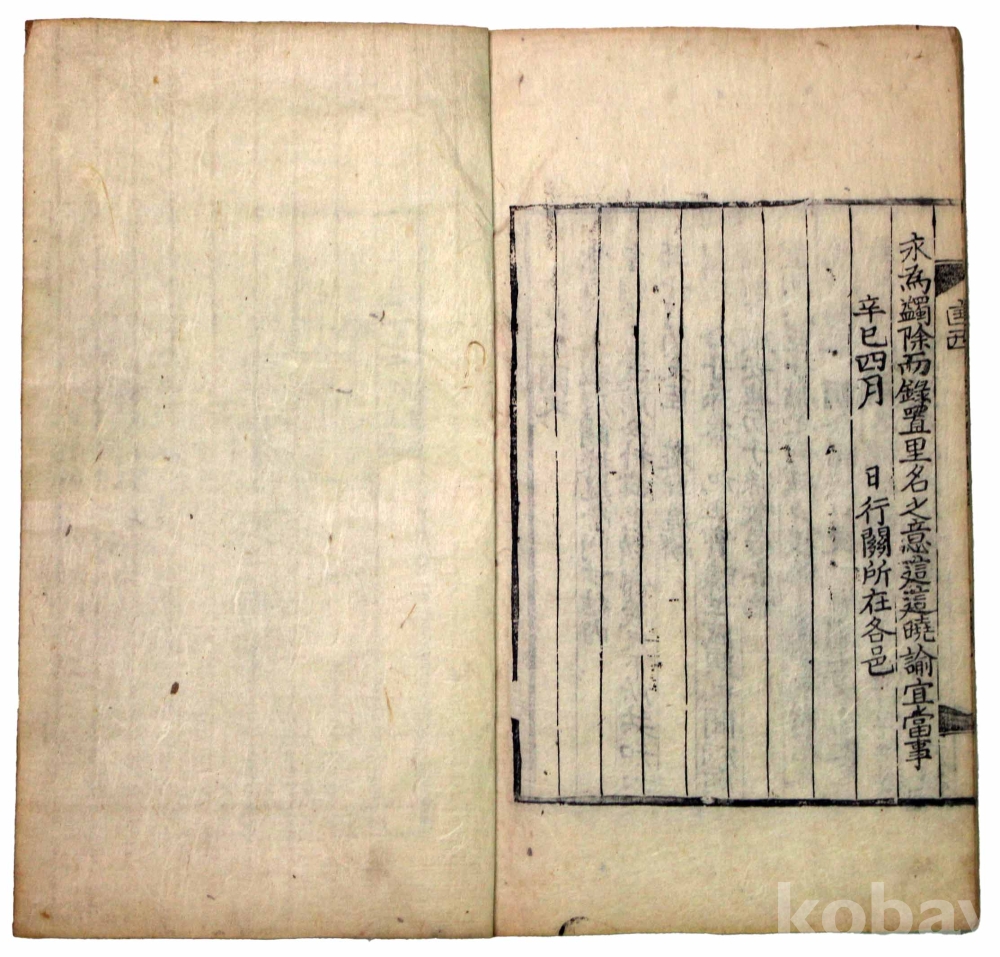 永爲蠲除而錄置里名之意這這曉諭宜當事
辛巳四月 日行關所在各邑
kobay